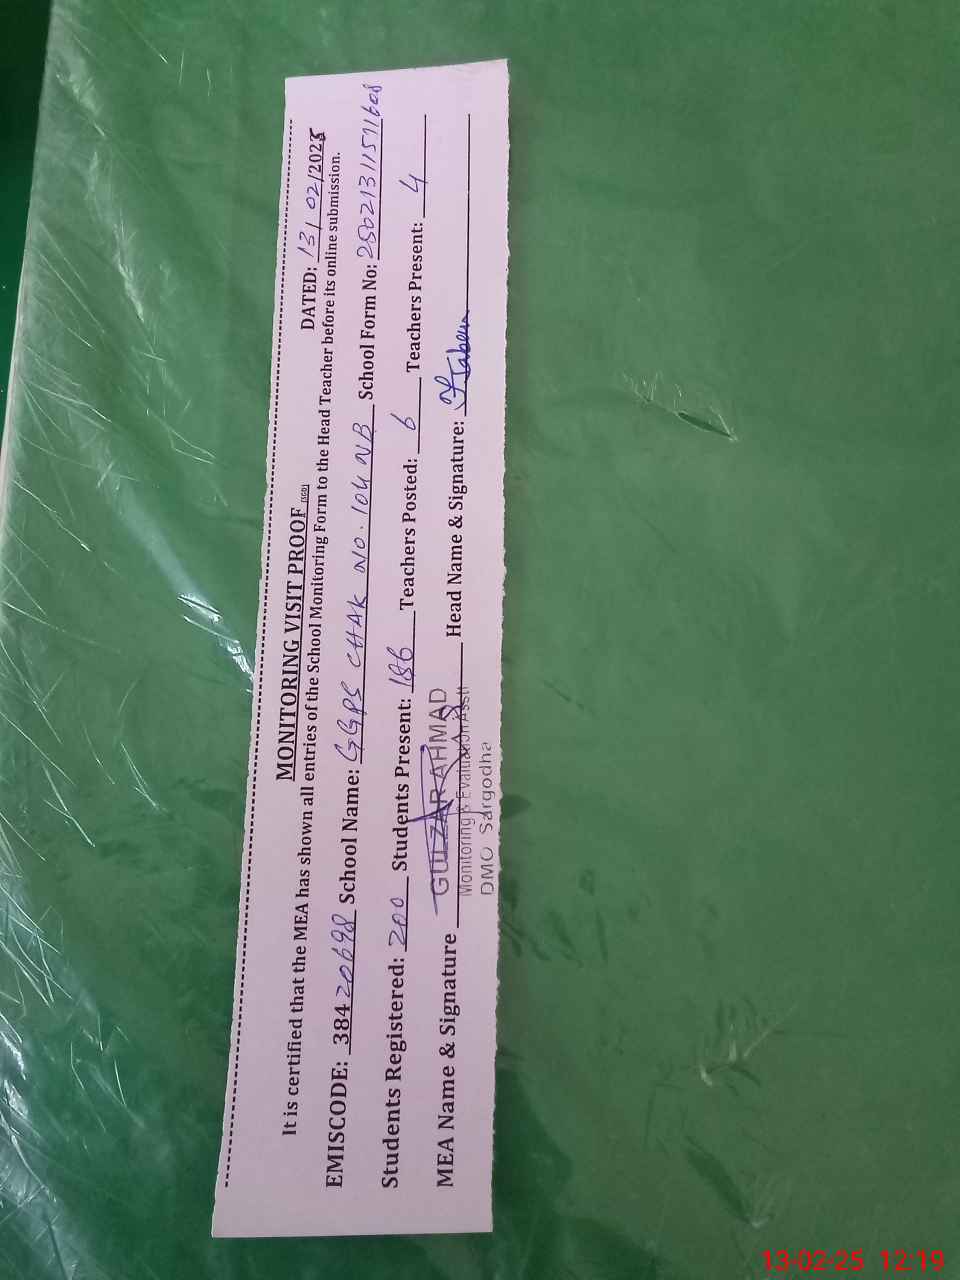 MONITORING VISIT PROOF (SGD)
DATED: 13/02/2025
It is certified that the MEA has shown all entries of the School Monitoring Form to the Head Teacher before its online submission.
EMISCODE: 38420698 School Name: GGPS CHAK NO. 104 NB School Form No: 250213115711608
Students Registered: 200 Students Present: 186 Teachers Posted: 6 Teachers Present: 4
MEA Name & Signature GULZAR AHMAD Head Name & Signature:
Monitoring & Evaluation Asstt
DMO Sargodha
13-02-25 12:19